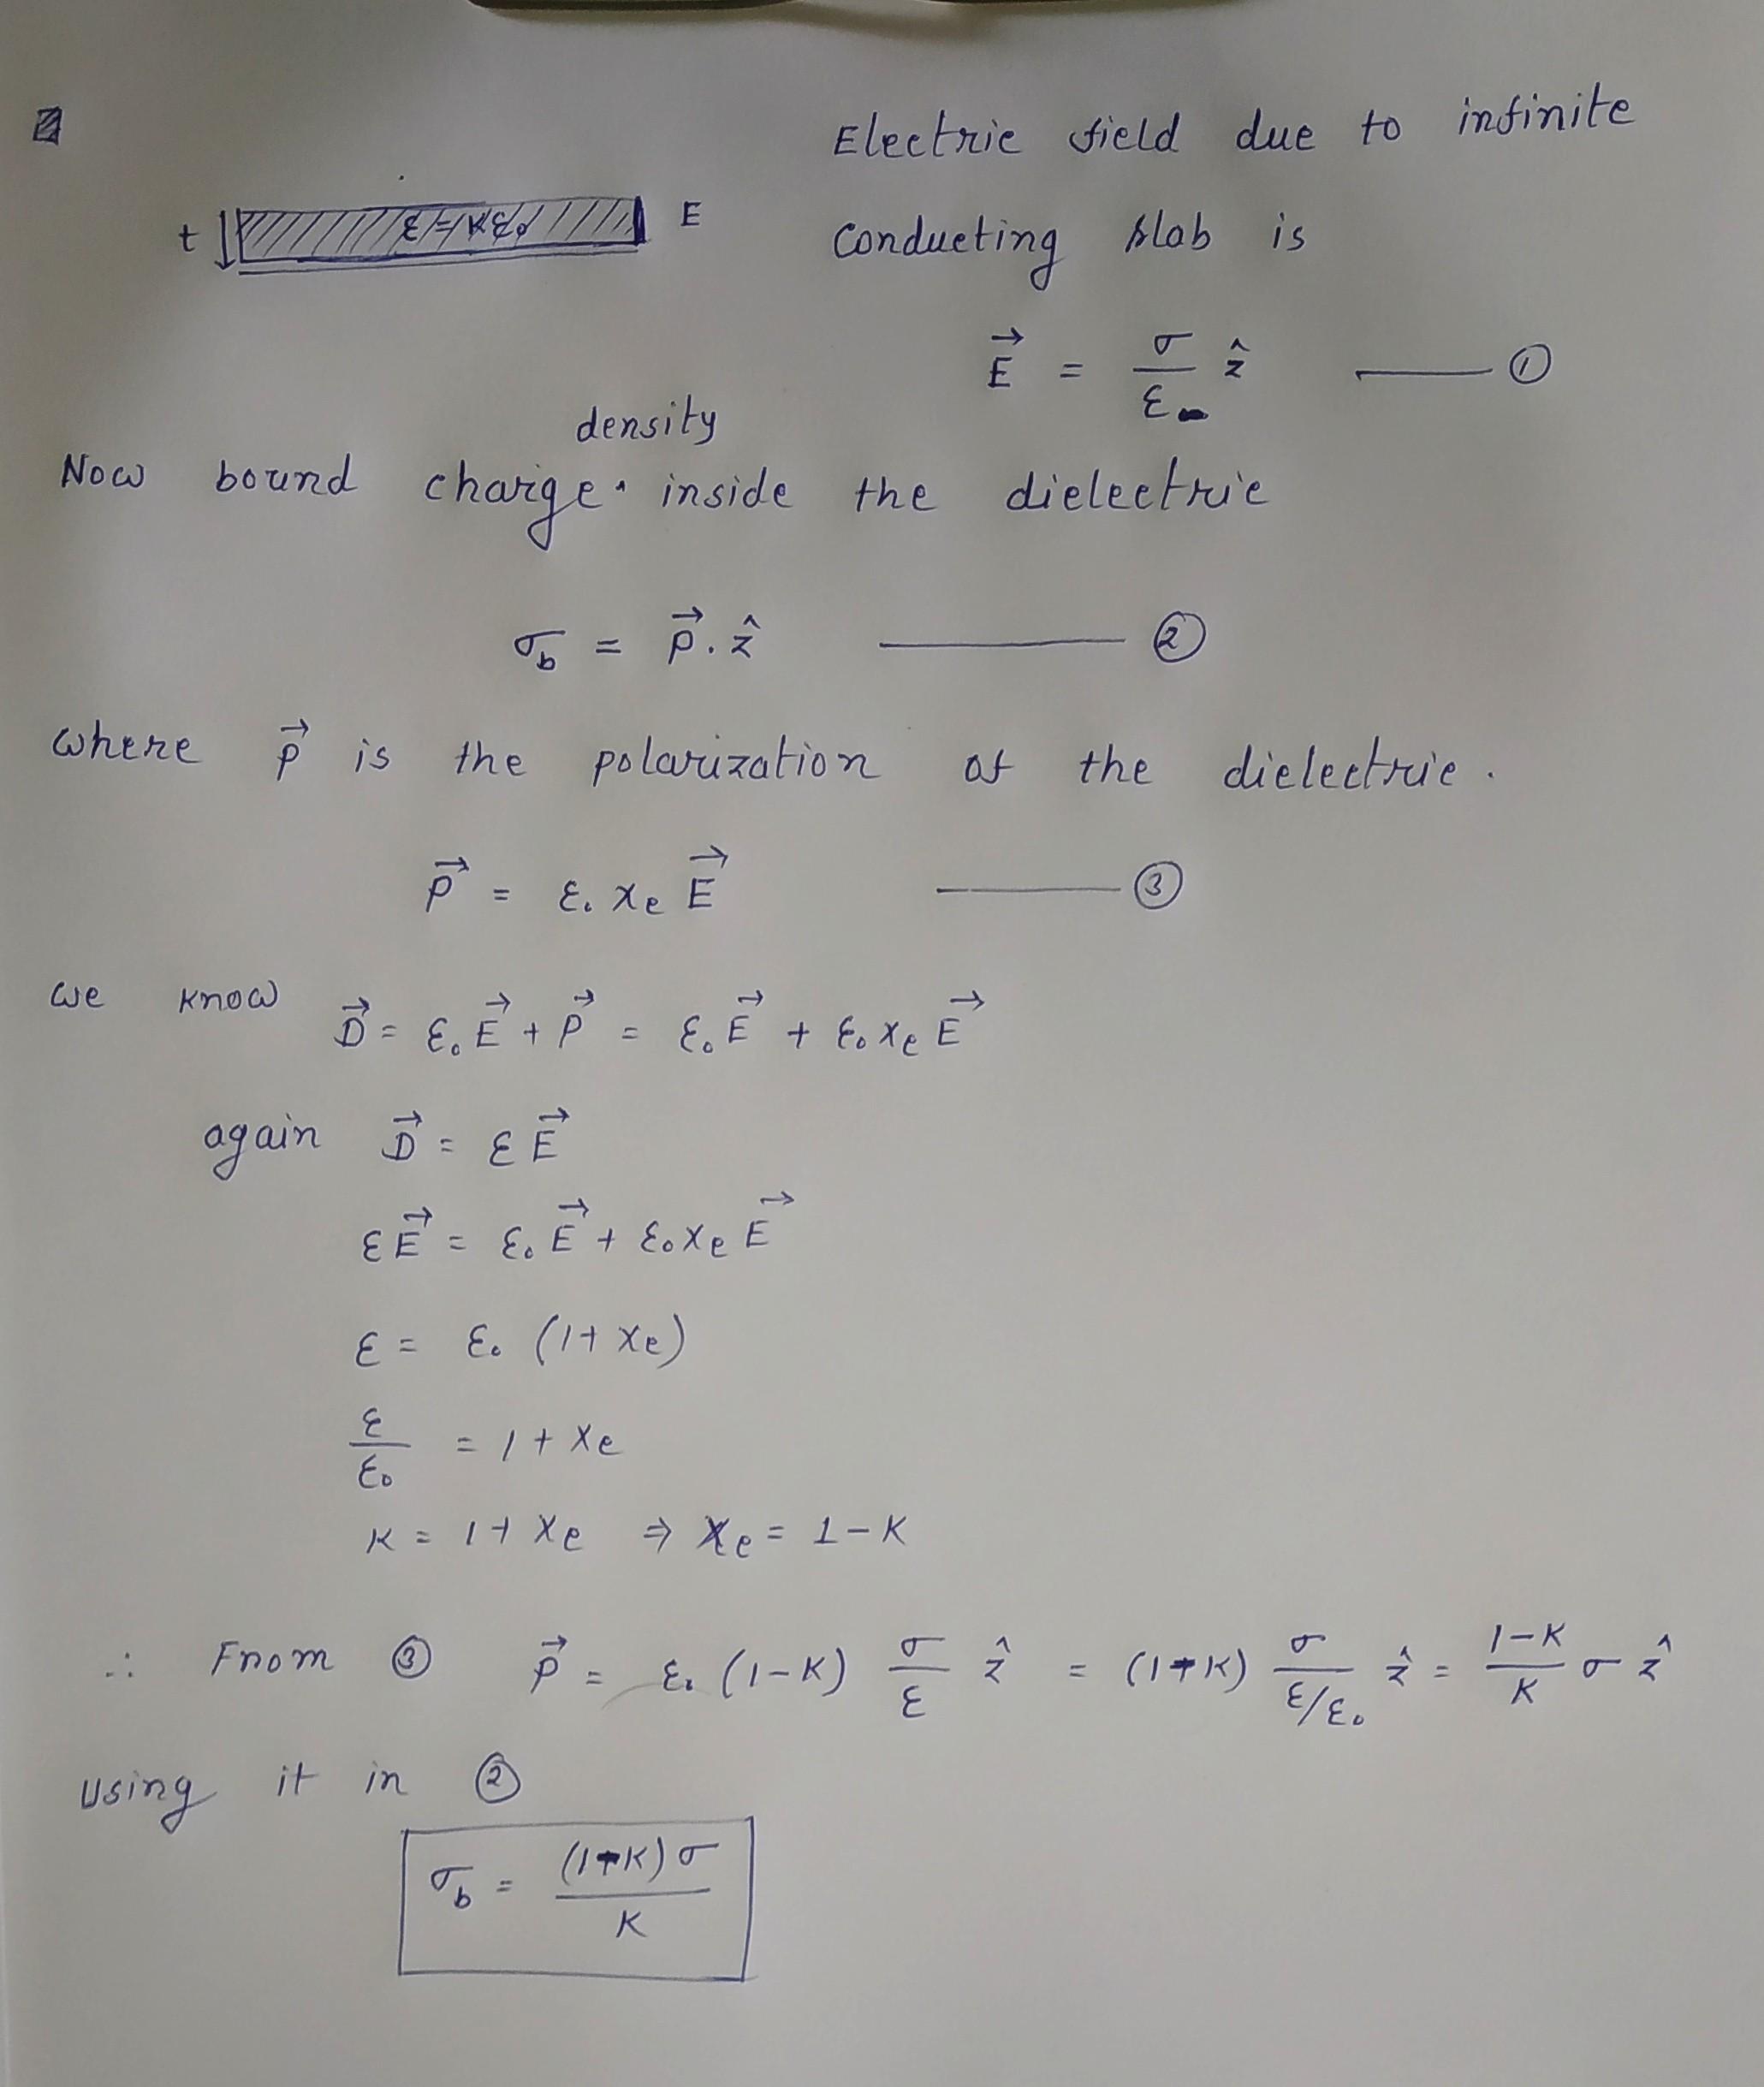 Electric field due to infinite
t ε=Kε₀ E conducting slab is
E⃗ = σ/ε ẑ ——— ①
density
Now bound charge ‸ inside the dielectric
σ_b = P⃗ . ẑ ——— ②
where P⃗ is the polarization of the dielectric.
P⃗ = ε₀ χe E⃗ ——— ③
we know D⃗ = ε₀ E⃗ + P⃗ = ε₀ E⃗ + ε₀ χe E⃗
again D⃗ = ε E⃗
ε E⃗ = ε₀ E⃗ + ε₀ χe E⃗
ε = ε₀ (1+ χe)
ε/ε₀ = 1 + χe
K = 1+ χe ⇒ χe = 1-K
∴ From ③ P⃗ = ε₀ (1-K) σ/ε ẑ = (1-K) σ/(ε/ε₀) ẑ = (1-K)/K σ ẑ
using it in ②
σ_b = (1-K)σ/K